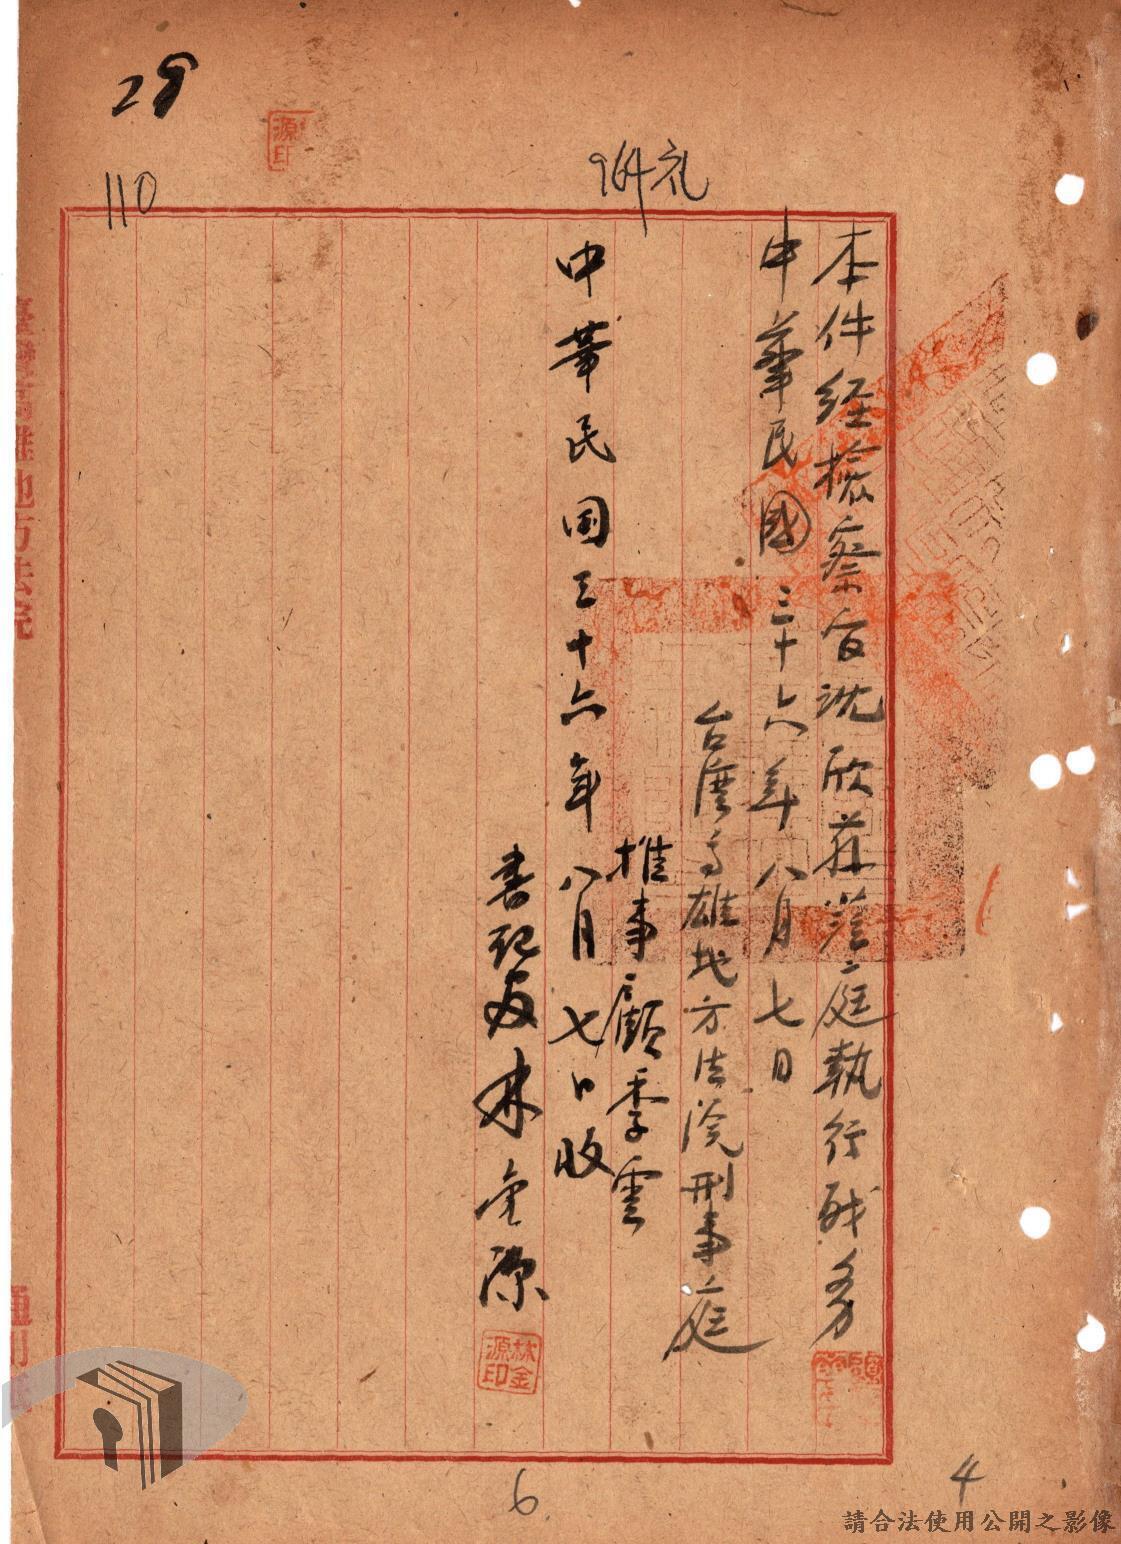 本件经檢察官沈欣蒞庭執行职务
中華民國三十六年八月七日
台灣高雄地方法院刑事庭
推事顧季雲
中華民国三十六年八月七日收
書記官林金源
林金源印
源印
28
110
964礼
臺灣高雄地方法院
通用
6
4
請合法使用公開之影像